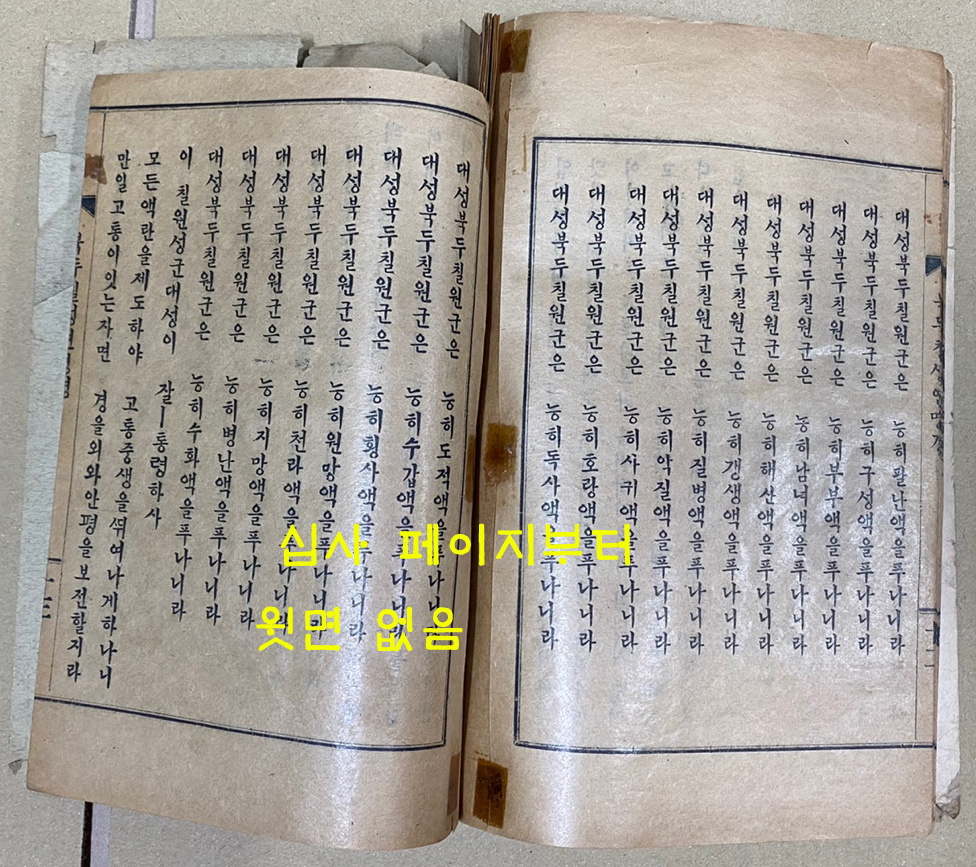 대성북두칠원군은 능히팔난액을푸나니라
대성북두칠원군은 능히구성액을푸나니라
대성북두칠원군은 능히부부액을푸나니라
대성북두칠원군은 능히남녀액을푸나니라
대성북두칠원군은 능히해산액을푸나니라
대성북두칠원군은 능히갱생액을푸나니라
대성북두칠원군은 능히질병액을푸나니라
대성북두칠원군은 능히악질액을푸나니라
대성북두칠원군은 능히사귀액을푸나니라
대성북두칠원군은 능히호랑액을푸나니라
대성북두칠원군은 능히독사액을푸나니라
대성북두칠원군은 능히도적액을푸나니
대성북두칠원군은 능히수갑액을푸나니라
대성북두칠원군은 능히횡사액을푸나니라
대성북두칠원군은 능히원망액을푸나니라
대성북두칠원군은 능히천라액을푸나니라
대성북두칠원군은 능히지망액을푸나니라
대성북두칠원군은 능히병난액을푸나니라
대성북두칠원군은 능히수화액을푸나니라
이 칠원성군대성이 잘ㅣ통령하사
모든액란을제도하야 고통중생을ᄯᅱ여나게하나니
만일고통이잇는자면 경을외와안평을보전할지라
십사 페이지부터
윗면 없음